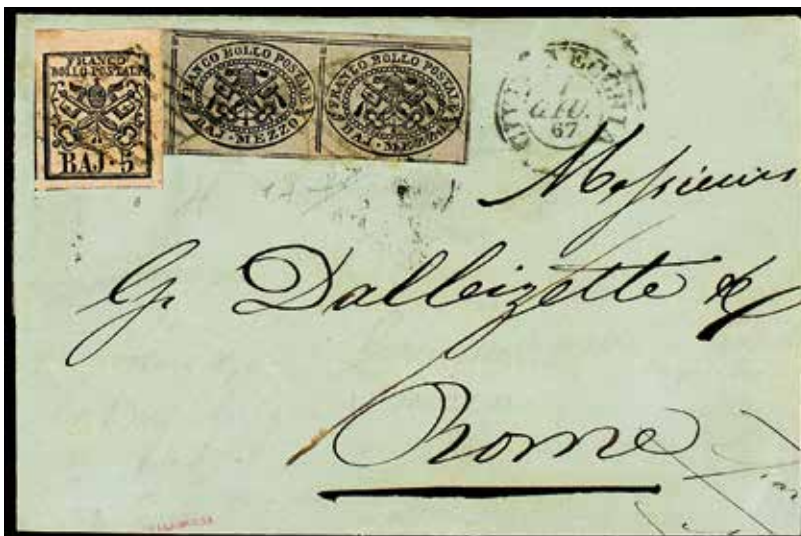 FRANCO
BOLLO POSTALE
BAJ·5
FRANCO BOLLO POSTALE
BAJ·MEZZO
FRANCO BOLLO POSTALE
BAJ·MEZZO
CIVITAVECCHIA
1
GIU.
67
Messieurs
G. Dalbizette &
Rome